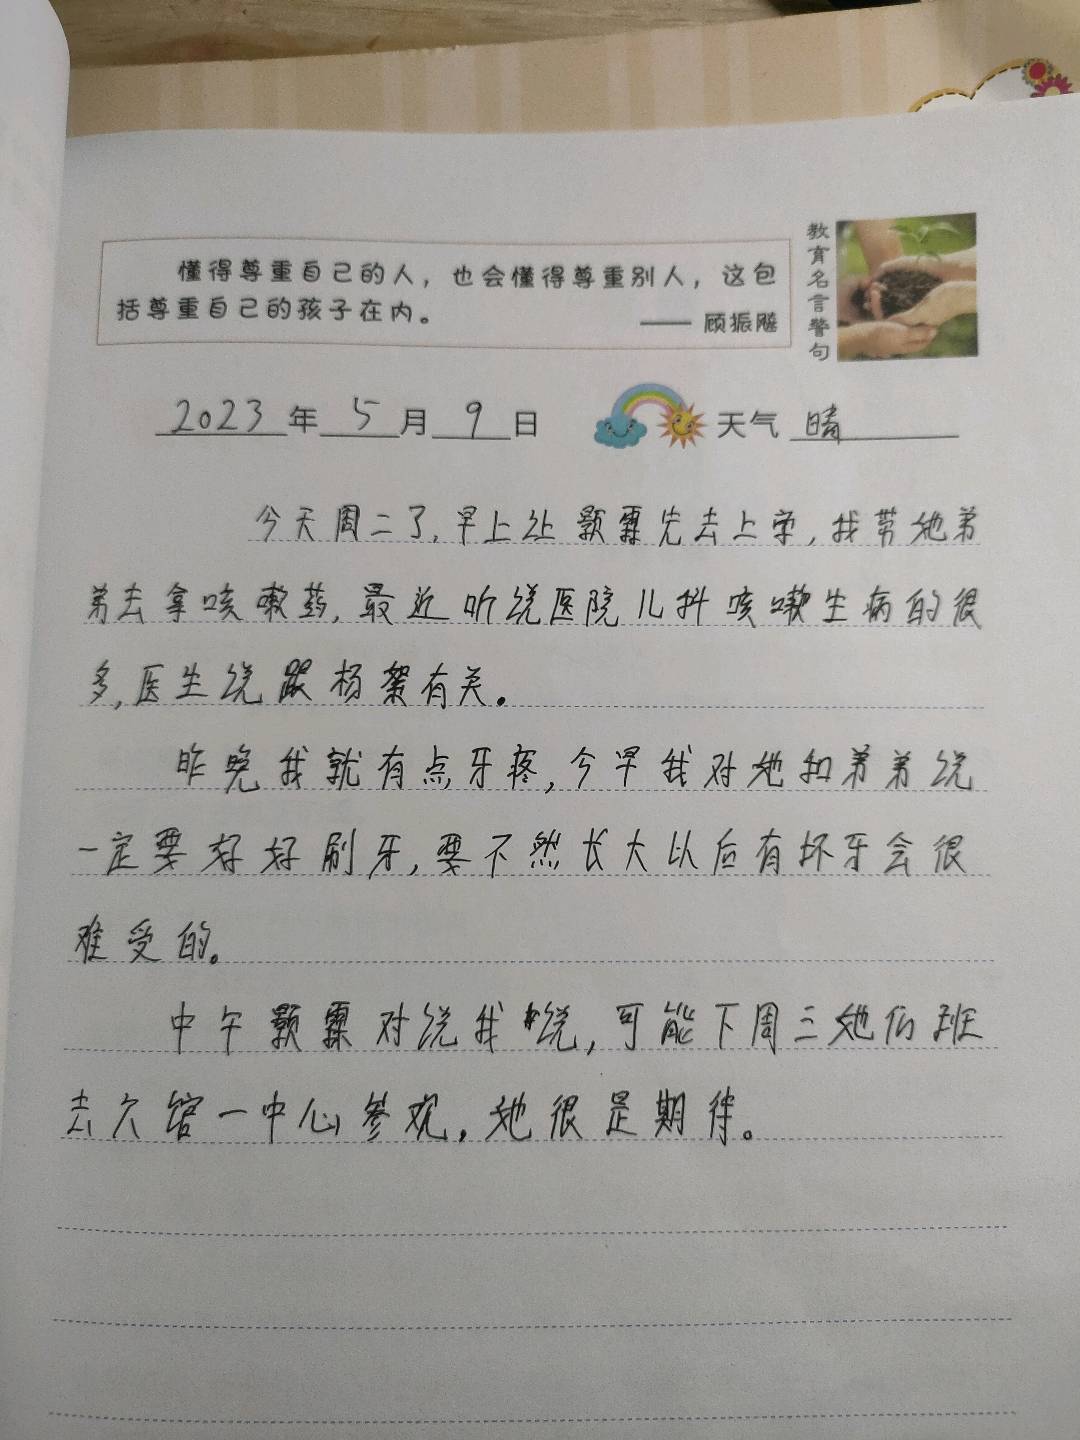 懂得尊重自己的人，也会懂得尊重别人，这包
括尊重自己的孩子在内。
—— 顾振飚
教育名言警句
2023年 5月 9日 天气 晴
今天周二了,早上让颢霖先去上学,我带她弟
弟去拿咳嗽药,最近听说医院儿科咳嗽生病的很
多,医生说跟杨絮有关。
昨晚我就有点牙疼,今早我对她和弟弟说
一定要好好刷牙,要不然长大以后有坏牙会很
难受的。
中午颢霖对说我说,可能下周三她们班
去六馆一中心参观,她很是期待。